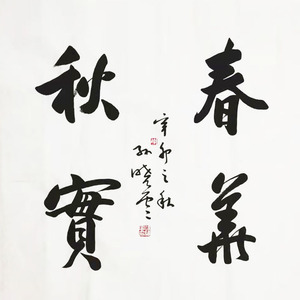 春華
秋實
辛卯之秋
孫曉雲